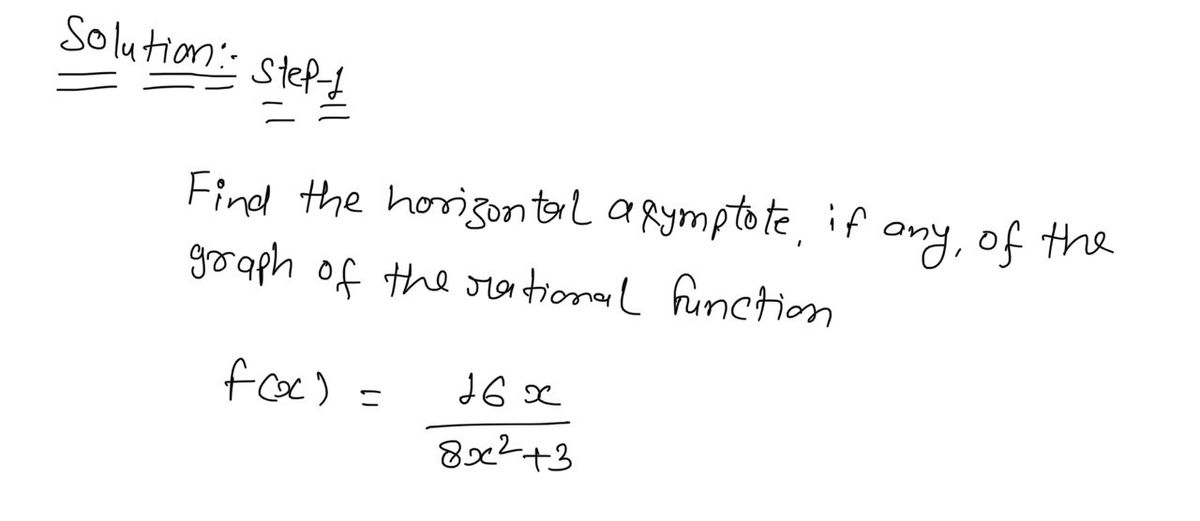 Solution:- Step-1
Find the horizontal asymptote, if any, of the
graph of the rational function
f(x) = 16x
8x²+3